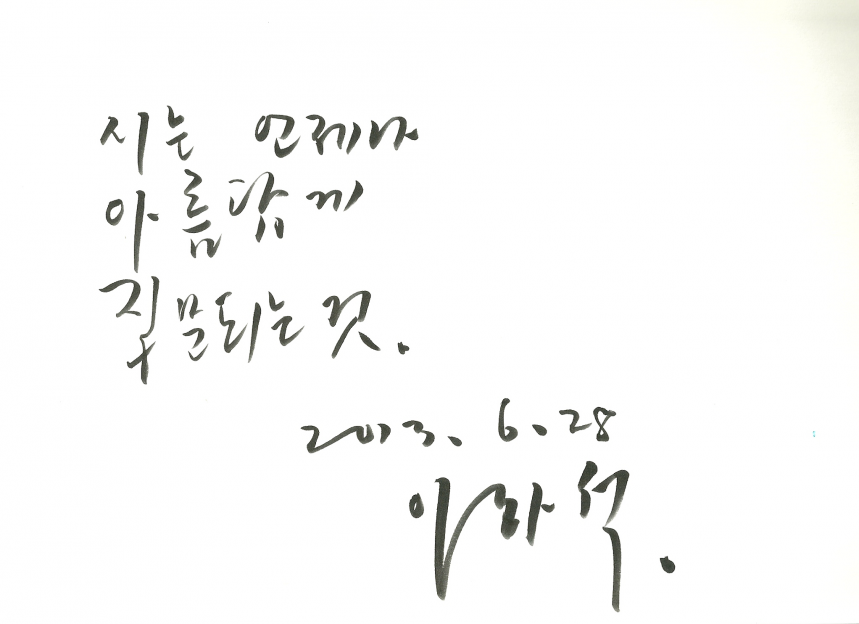 시는 언제나
아름답게
질문되는 것.
2013. 6. 28
이하석.